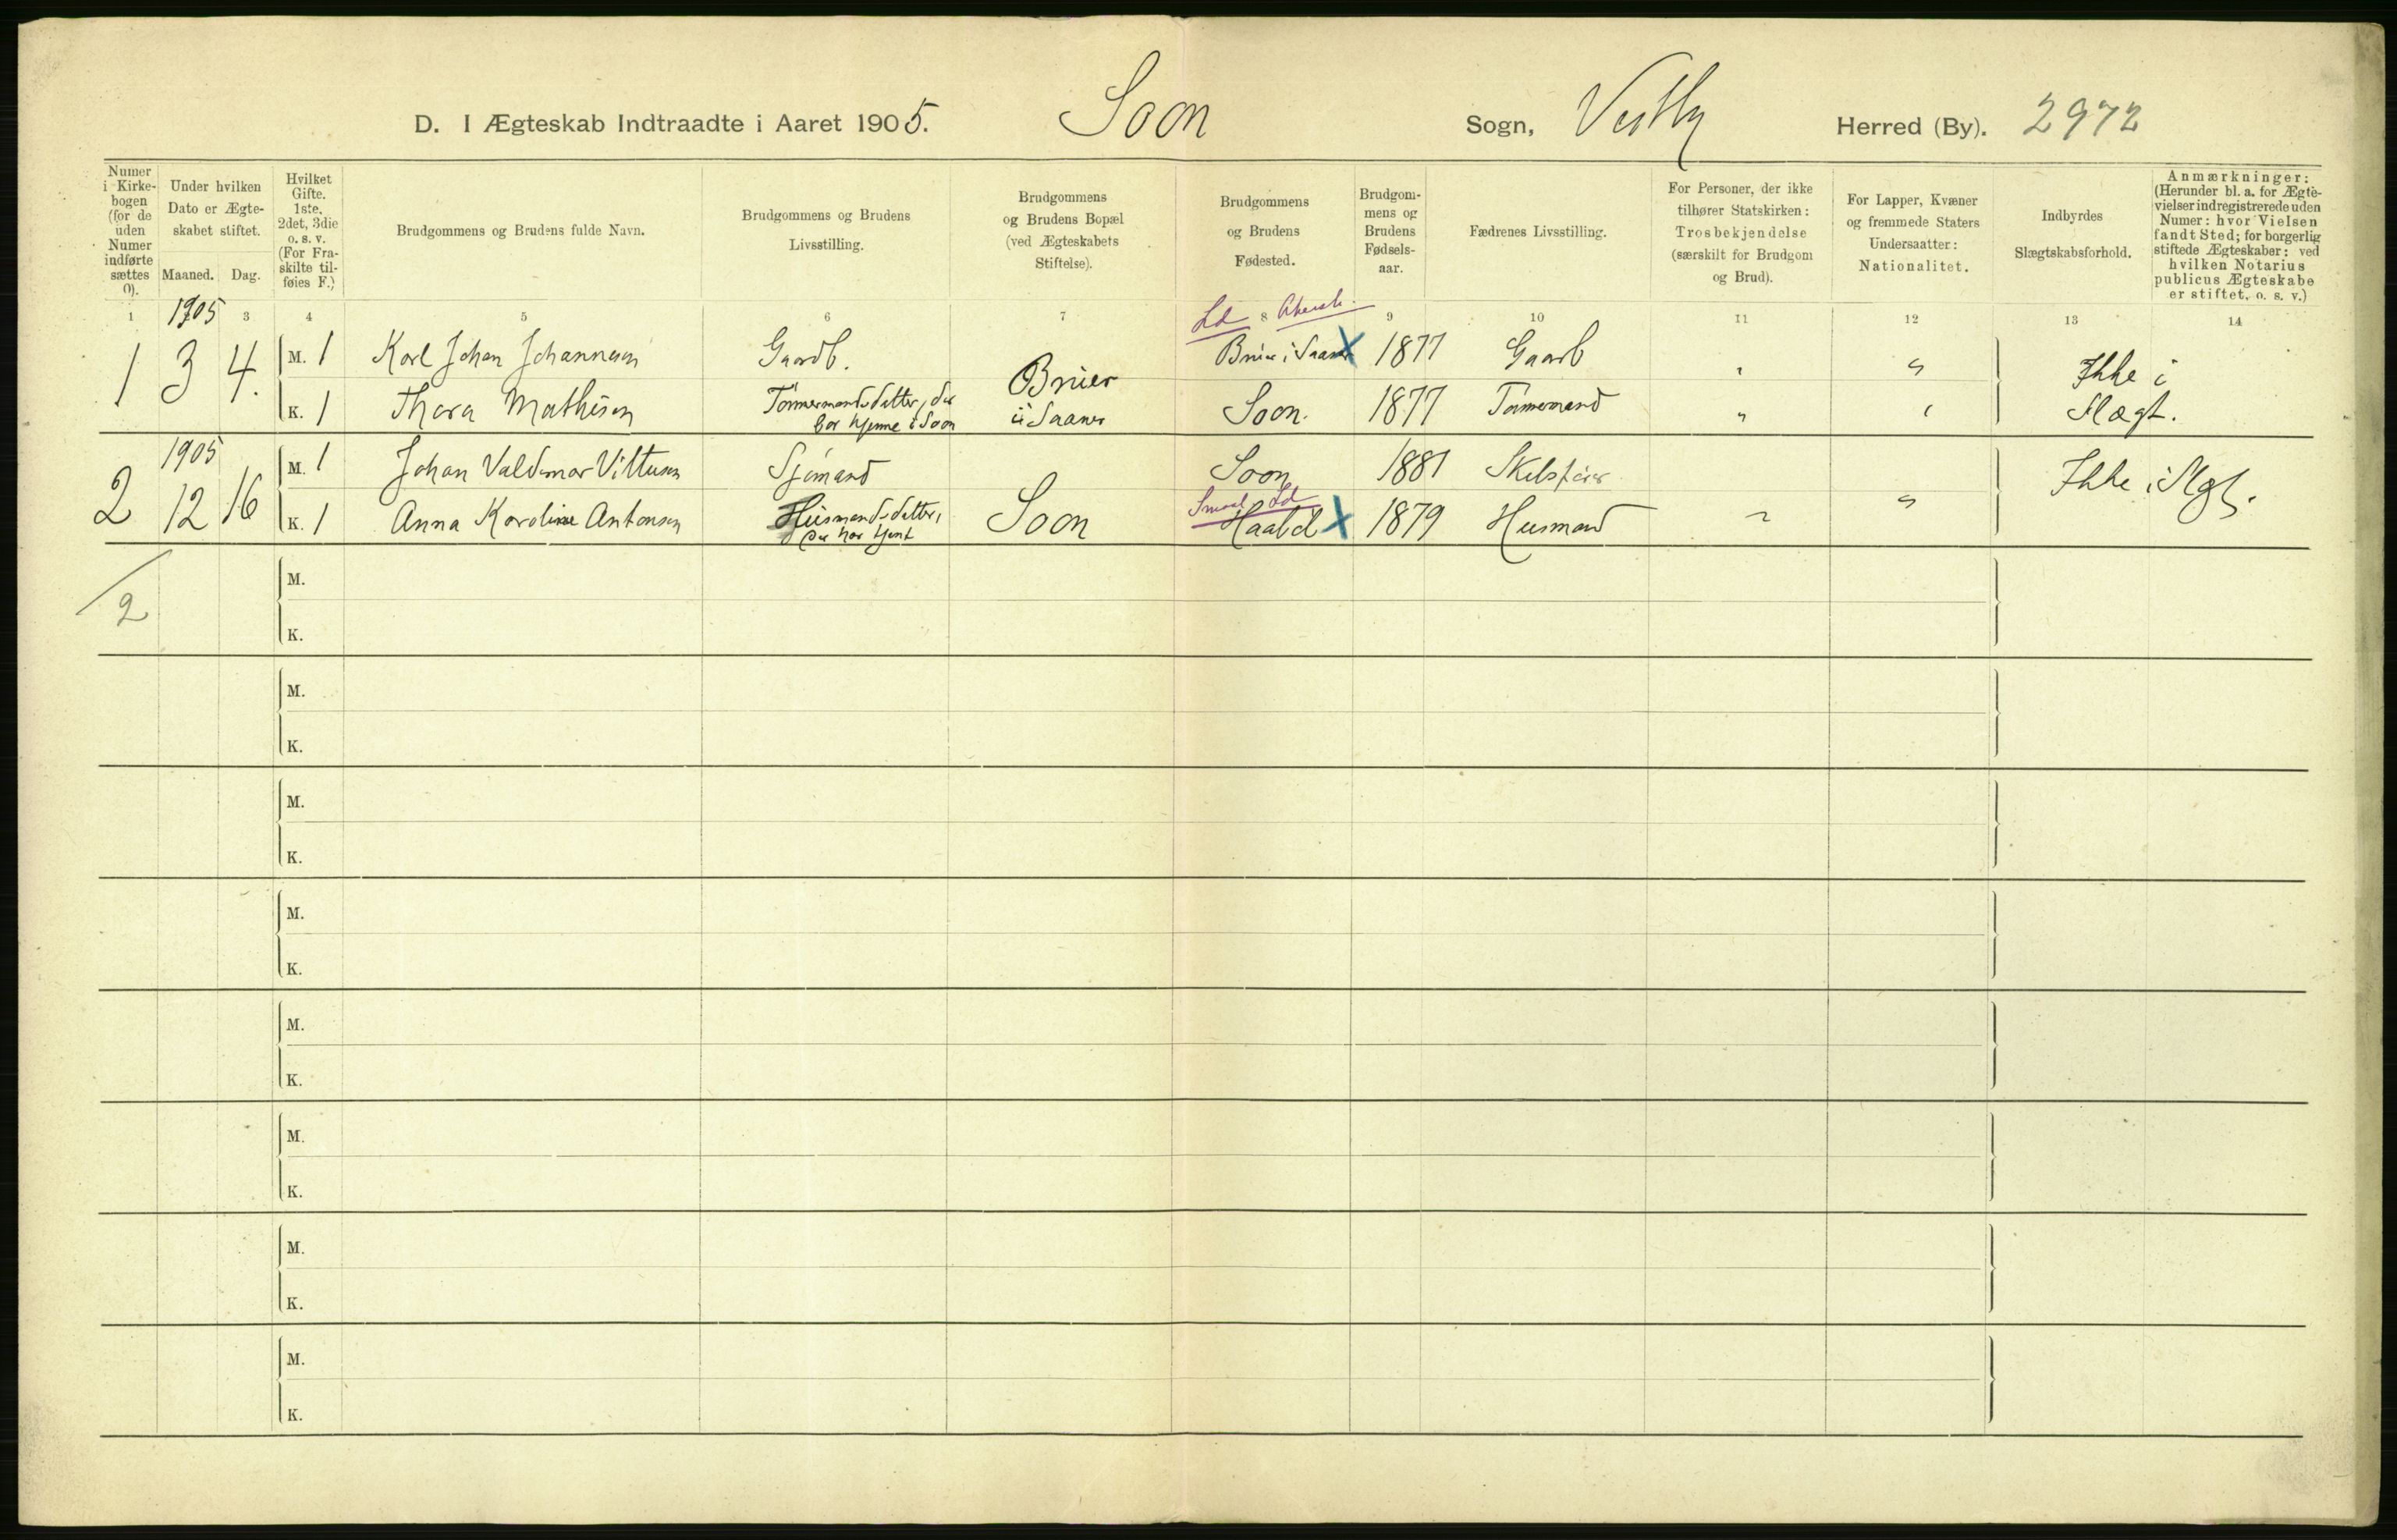 D. I Ægteskab Indtraadte i Aaret 1905. Soon Sogn, Vestby Herred (By). 2972
Numer i Kirkebogen (for de uden Numer indførte sættes 0).
Under hvilken Dato er Ægteskabet stiftet.
Maaned. Dag.
Hvilket Gifte. 1ste, 2det, 3die o. s. v. (For Fraskilte tilføies F.)
Brudgommens og Brudens fulde Navn.
Brudgommens og Brudens Livsstilling.
Brudgommens og Brudens Bopæl (ved Ægteskabets Stiftelse).
Brudgommens og Brudens Fødested.
Brudgommens og Brudens Fødselsaar.
Fædrenes Livsstilling.
For Personer, der ikke tilhører Statskirken: Trosbekjendelse (særskilt for Brudgom og Brud).
For Lapper, Kvæner og fremmede Staters Undersaatter: Nationalitet.
Indbyrdes Slægtskabsforhold.
Anmærkninger: (Herunder bl. a. for Ægtevielser indregistrerede uden Numer: hvor Vielsen fandt Sted; for borgerlig stiftede Ægteskaber: ved hvilken Notarius publicus Ægteskabe er stiftet, o. s. v.)
1 1905 3 4 5 6 7 8 9 10 11 12 13 14
Ld
1 3 4. M. 1 Karl Johan Johannesen Gaardb. Brüer i Saaner X 1877 Gaardb " Ikke i
K. 1 Thora Mathisen Tømmermandsdatter, der bor hjemme i Soon Brüer i Saaner Soon. 1877 Tømmermand " " Slægt.
1905
2 12 16 M. 1 Johan Valdemar Vittusen Sjømand Soon 1881 Ikke i Slgt.
Smaal Ld
K. 1 Anna Karoline Antonsen Husmandsdatter, der har tjent Soon Haabøl X 1879 Husmand " "
2
M.
K.
M.
K.
M.
K.
M.
K.
M.
K.
M.
K.
M.
K.
M.
K.